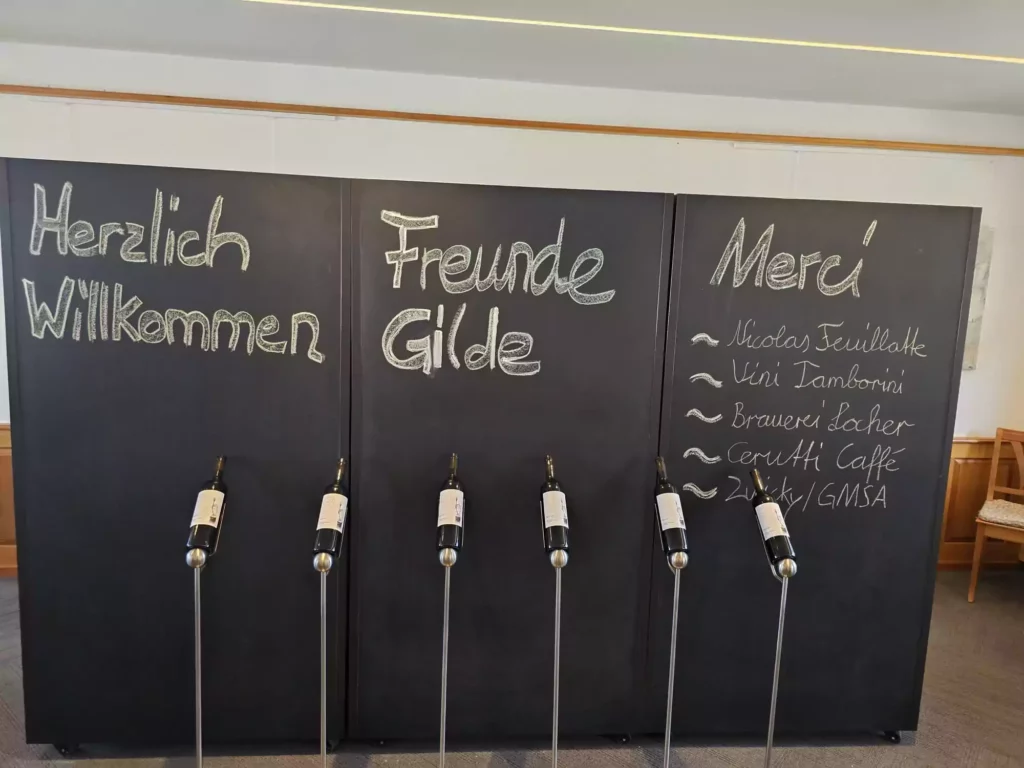 Herzlich
Willkommen
Freunde
Gilde
Merci
~ Nicolas Feuillatte
~ Vini Tamborini
~ Brauerei Locher
~ Cerutti Caffé
~ Zwicky/GMSA